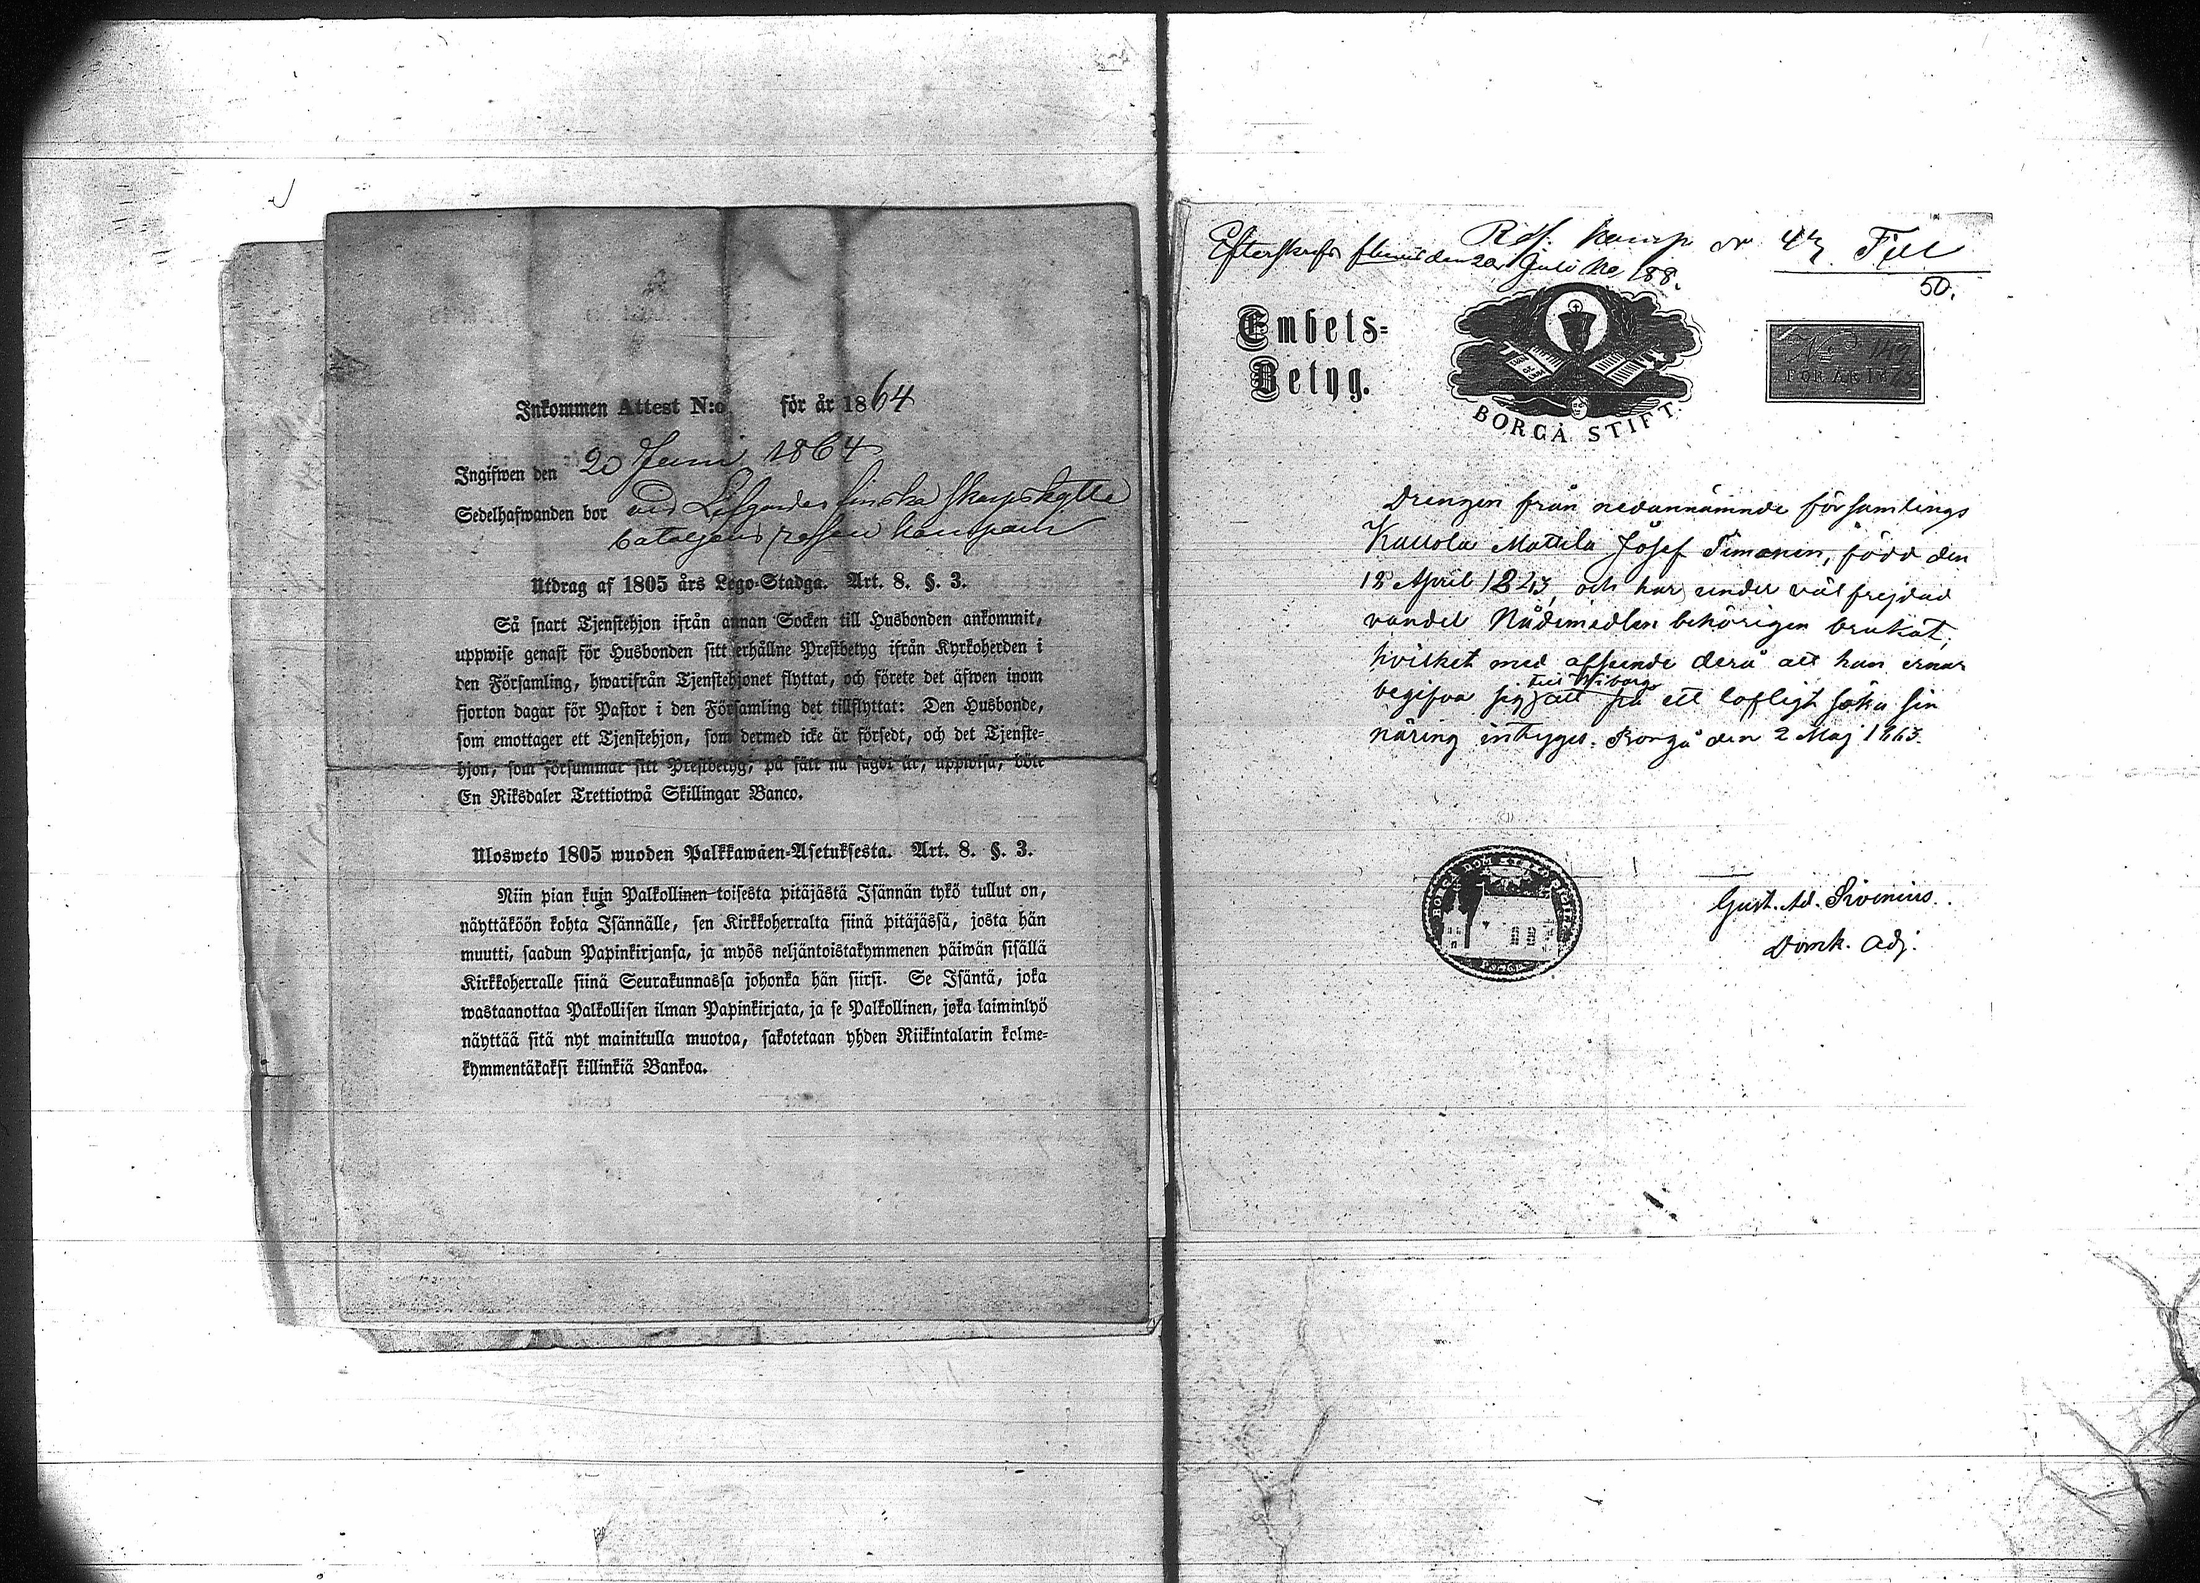 Inkommen Attest N:o för år 1864
Ingifwen den 20 Juni 1864
Sedelhafwanden bor vid Lifgardes finska skarpskytte
bataljons kompani
Utdrag af 1805 års Lego-Stadga. Art. 8. §. 3.
Så snart Tjenstehjon ifrån annan Socken till Husbonden ankommit,
uppwise genast för Husbonden sitt erhållne Prestbetyg ifrån Kyrkoherden i
den Församling, hwarifrån Tjenstehjonet flyttat, och förete det äfwen inom
fjorton dagar för Pastor i den Församling det tillflyttat: Den Husbonde,
som emottager ett Tjenstehjon, som dermed icke är försedt, och det Tjenste-
hjon, som försummar sitt Prestbetyg, på sätt nu sagdt är, uppwisa, böte
En Riksdaler Trettiotwå Skillingar Banco.
Ulosweto 1805 wuoden Palkkawäen-Asetuksesta. Art. 8. §. 3.
Niin pian kuin Palkollinen toisesta pitäjästä Isännän tykö tullut on,
näyttäköön kohta Isännälle, sen Kirkkoherralta siinä pitäjässä, josta hän
muutti, saadun Papinkirjansa, ja myös neljäntoistakymmenen päiwän sisällä
Kirkkoherralle siinä Seurakunnassa johonka hän siirsi. Se Isäntä, joka
wastaanottaa Palkollisen ilman Papinkirjata, ja se Palkollinen, joka laiminlyö
näyttää sitä nyt mainitulla muotoa, sakotetaan yhden Riikintalarin kolme-
kymmentäkaksi killinkiä Bankoa.
Komp
den 20 Juli No 188.
50.
Embets-
Betyg.
BORGÅ STIFT.
No
FÖR ÅR 18
Drengen från nedannämnde församlings
Mattila Josef Timonen, född den
18 April 1843, och har under välfrejdad
vandel Nådemedlen behörigen brukat,
hvilket med afseende derå att han ernar
till Wiborg
begifva sig att på ett lofligt söka sin
näring intygas. Borgå den 2 Maj 1863.
BORGÅ DOM
Gust. Ad. Sirenius.
Domk. Adj.